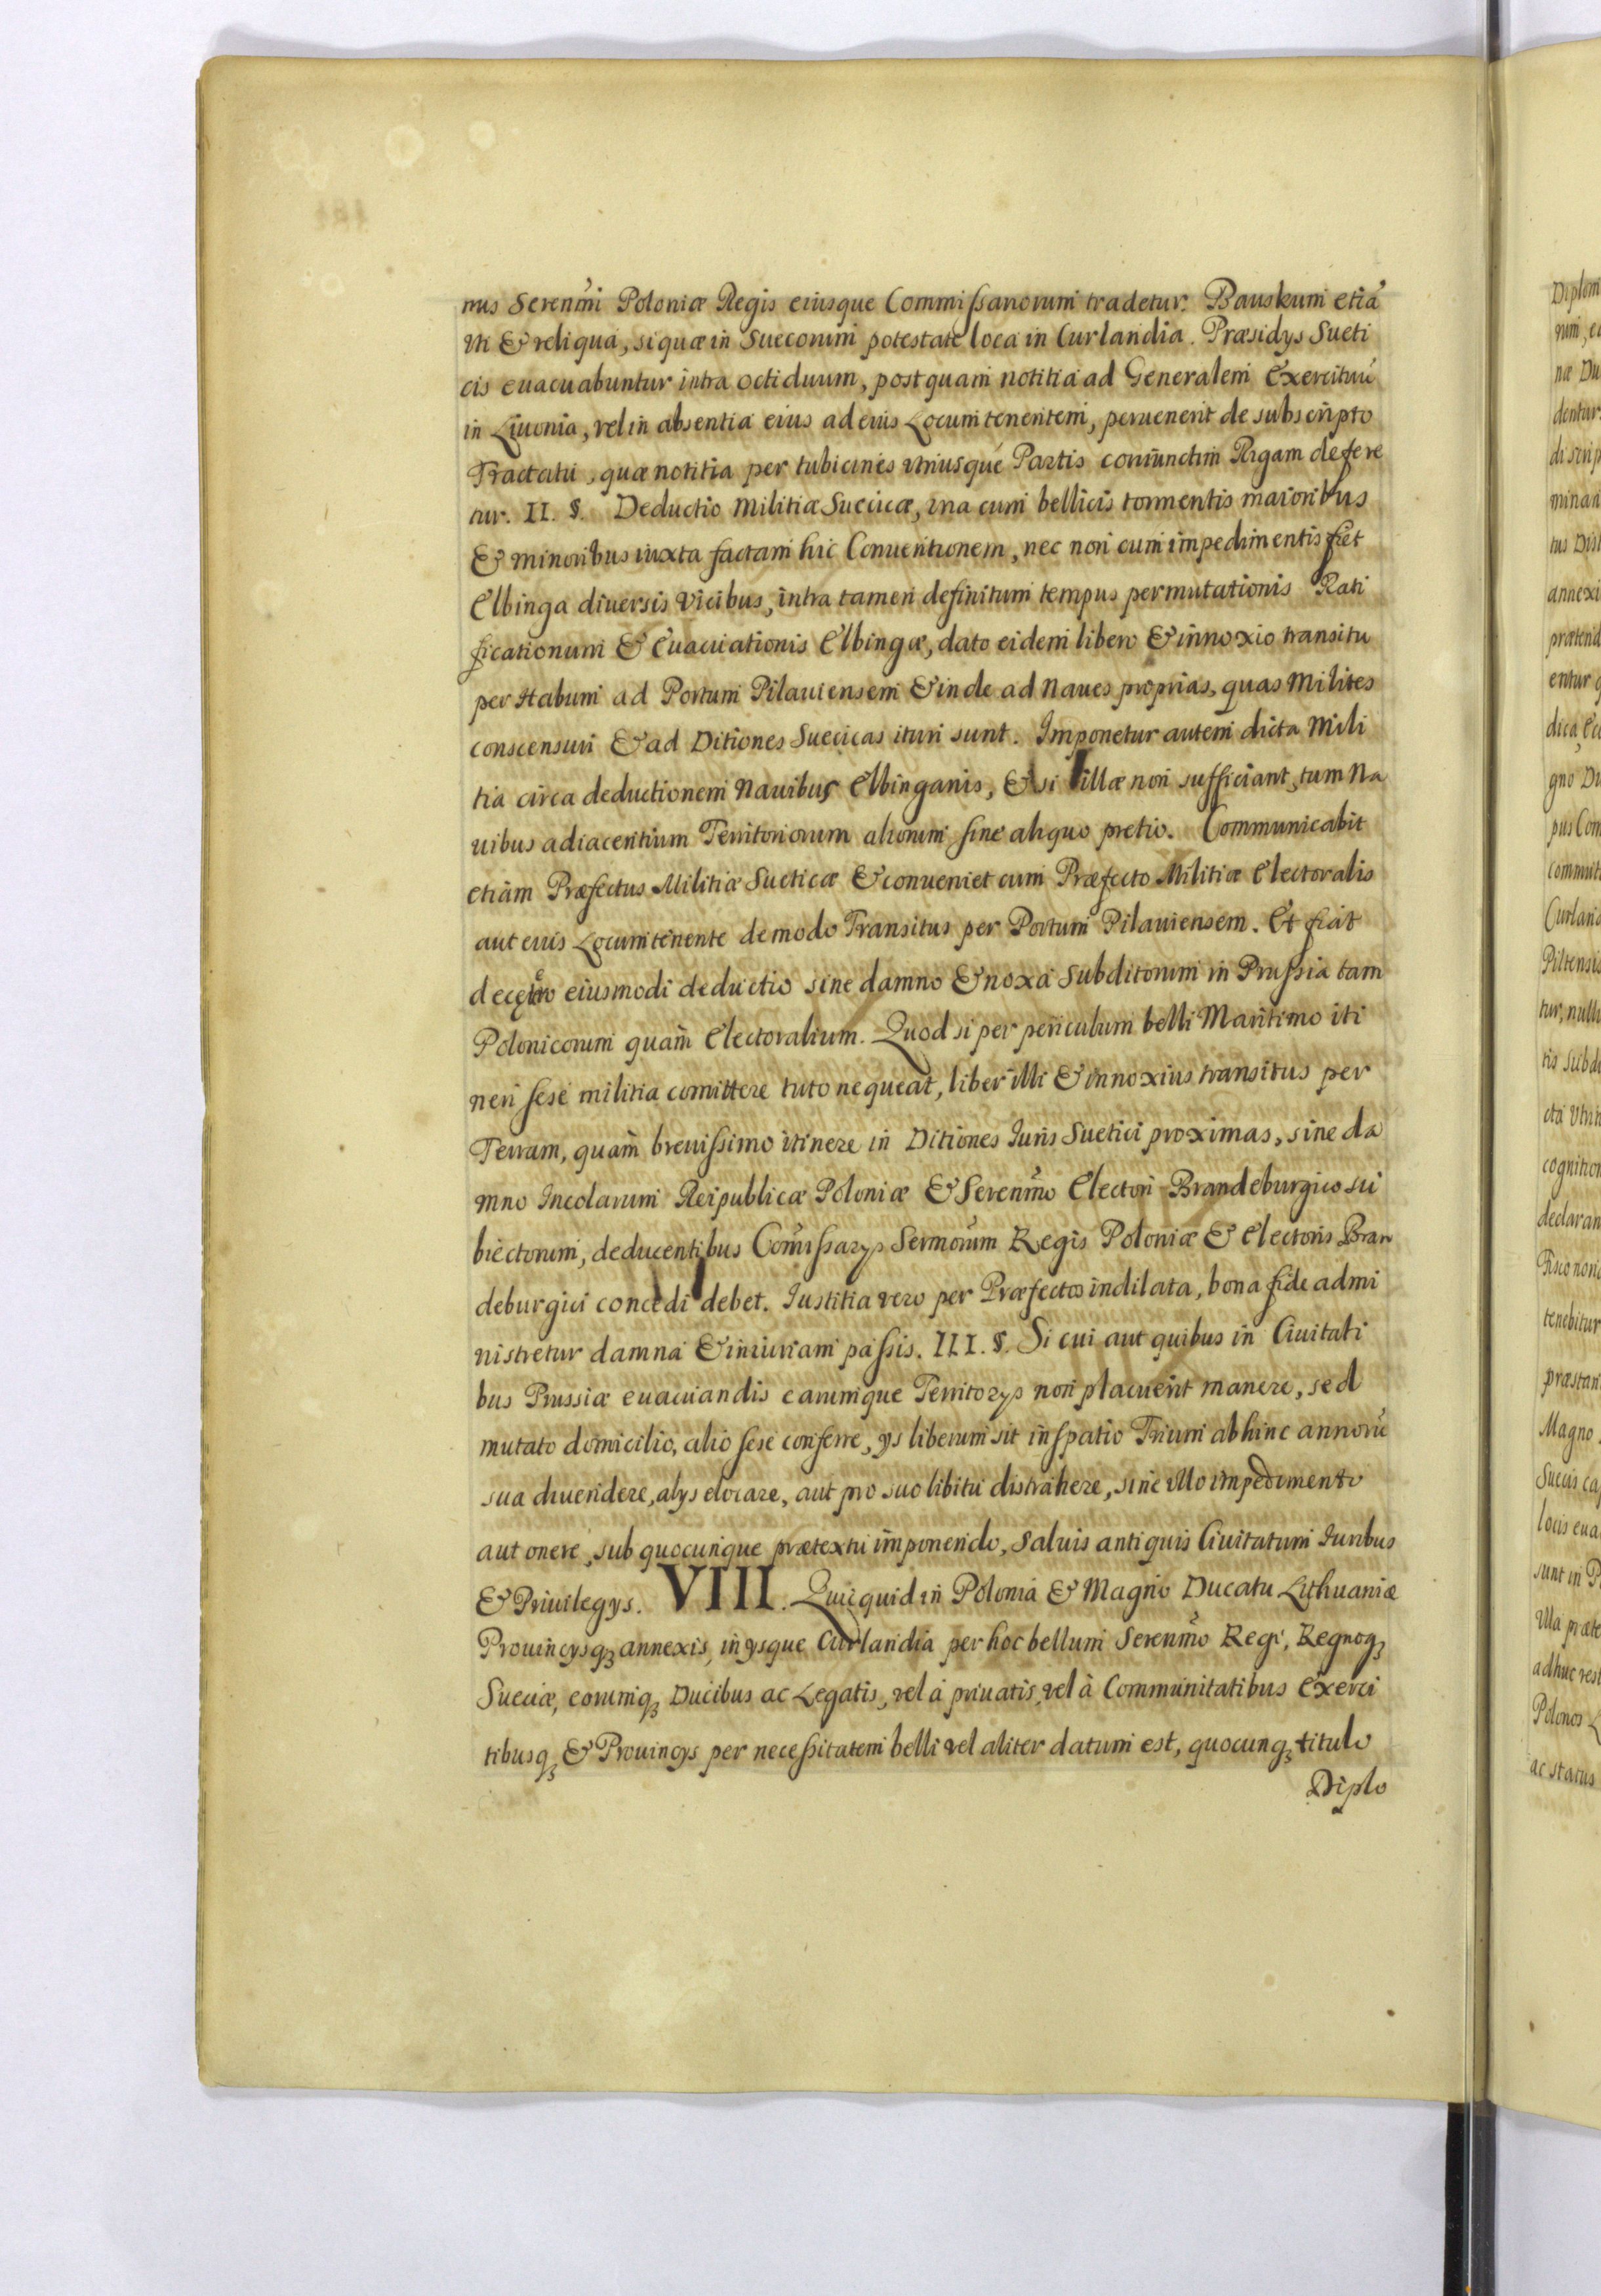 nus Serenm̃i Poloniæ Regis eiusque Commißariorum tradetur. Bauskum etiā
uti & reliqua, si quæ in Suecorum potestate loca in Curlandia. Præsidys Sueti
cis euacuabuntur intra octiduum, postquam notitia ad Generalem Exercituū
in Liuonia, vel in absentia eius ad eius Locumtenentem, peruenerit de subscripto
Tractatu, quæ notitia per tubicines utriusque Partis coniunctim Rigam defere
tur. II. §. Deductio Militiæ Suecicæ, una cum bellicis tormentis maioribus
& minoribus iuxta factam hic Conuentionem, nec non cum impedimentis fiet
Elbinga diuersis vicibus, intra tamen definitum tempus permutationis Rati
ficationum & Euacuationis Elbingæ, dato eidem libero & innoxio transitu
per Habum ad Portum Pilauiensem & inde ad Naues proprias, quas Milites
conscensuri & ad Ditiones Suecicas ituri sunt. Imponetur autem dicta Mili
tia circa deductionem Nauibus Elbinganis, & si illæ non sufficiant, tum Na
uibus adiacentium Territoriorum aliorum sine aliquo pretio. Communicabit
etiam Præfectus Militiæ Sueticæ & conueniet cum Præfecto Militiæ Electoralis
aut euis Locumtenente de modo Transitus per Portum Pilauiensem. Et fiat
decętero eiusmodi deductio sine damno & noxa Subditorum in Prußia tam
Polonicorum quam Electoralium. Quod si per periculum belli Maritimo iti
neri sese militia comittere tuto nequeat, liber illi & innoxius transitus per
Terram, quam breuißimo itinere in Ditiones Iuris Suetici proximas, sine da
mno Incolarum Reipublicæ Poloniæ & Serenm̃o Electori Brandeburgico su
biectorum, deducentibus Com̃ißarys Sermorũm Regis Poloniæ & Electoris Bran
deburgici concedi debet. Iustitia vero per Præfectos indilata, bona fide admi
nistretur damna & iniuriam paßis. III. §. Si cui aut quibus in Ciuitati
bus Prussiæ euacuandis earumque Territorys non placuerit manere, sed
mutato domicilio, alio sese conferre, ys liberum sit in spatio Trium abhinc annorū
sua diuendere, alys elocare, aut pro suo libitu distrahere, sine ullo impedimento
aut onere, sub quocunque prætextu imponendo, Saluis antiquis Ciuitatum Iuribus
& Priuilegys. VIII. Quicquid in Polonia & Magno Ducatu Lithuaniæ
Prouincysqꝫ annexis, inysque Curlandia per hoc bellum Serenm̃o Regi, Regnoqꝫ
Sueciæ, eorumqꝫ Ducibus ac Legatis, vel à priuatis, vel à Communitatibus Exerci
tibusqꝫ & Prouincys per neceßitatem belli vel aliter datum est, quocunqꝫ titulo
Diplo